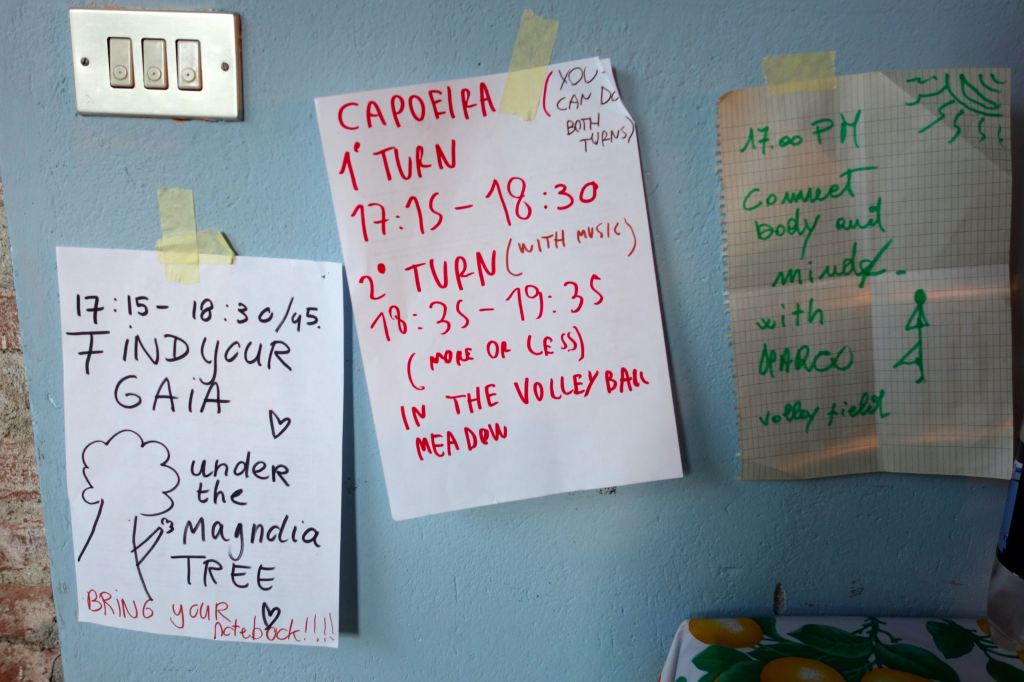 17:15 - 18:30/45.
FiND yOUR
GAiA
under
the
Magnolia
TREE
BRiNG yOUR
notebook!!!!
CAPOEIRA (YOU
CAN DO
BOTH
TURNS)
1° TURN
17:15 - 18:30
2° TURN (WITH MUSIC)
18:35 - 19:35
(MORE OR LESS)
IN THE VOLLEYBALL
MEADOW
17.00 PM
Connect
body and
mind
with
MARCO
volley field